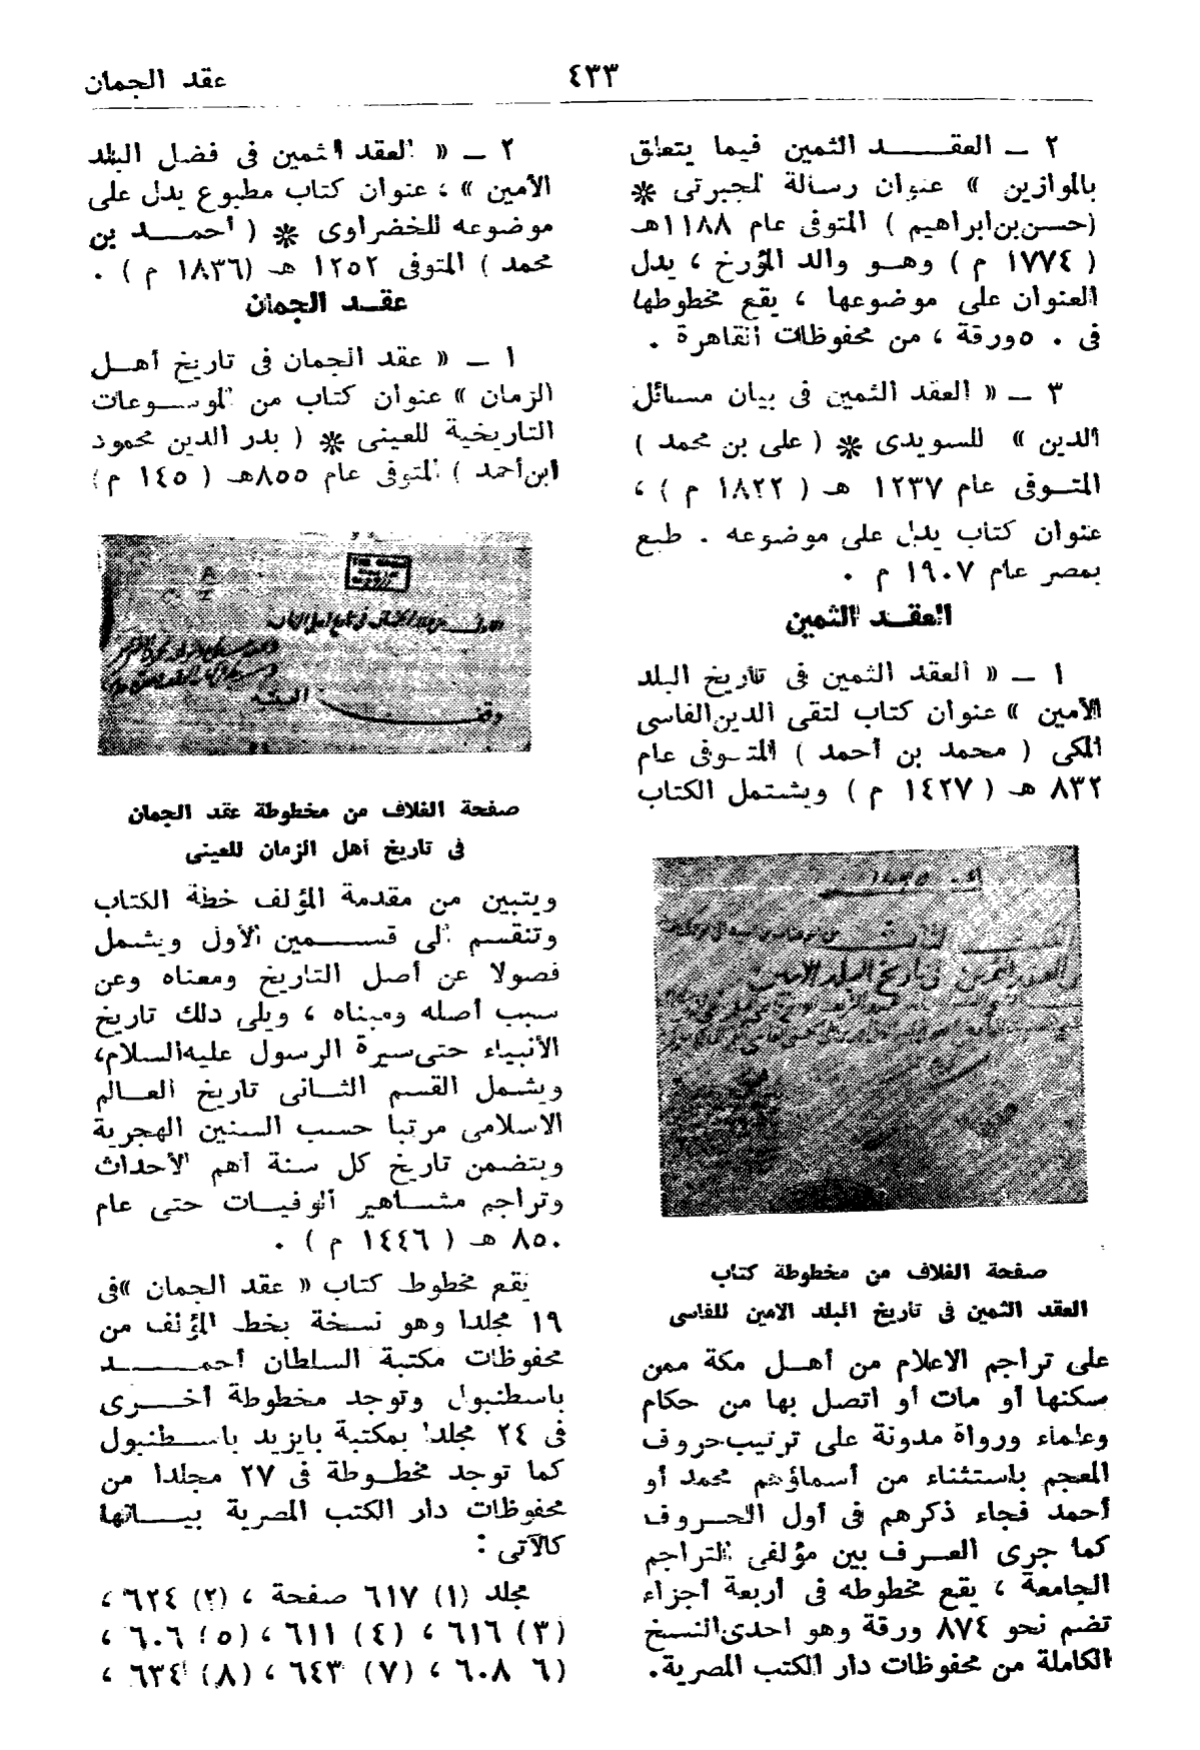 ٤٣٣
عقد الجمان
٢ ــ العقــــد الثمين فيما يتعلق
بالموازين » عنوان رسالة للجبرتى ✻
(حسن بن ابراهيم ) المتوفى عام ١١٨٨هـ
( ١٧٧٤ م ) وهــو والد المؤرخ ، يدل
العنوان على موضوعها ، يقع مخطوطها
فى ٥٠ ورقة ، من محفوظات القاهرة .
٣ ــ « العقد الثمين فى بيان مسائل
الدين » للسويدى ✻ ( على بن محمد )
المتــوفى عام ١٢٣٧ هـ ( ١٨٢٢ م ) ،
عنوان كتاب يدل على موضوعه . طبع
بمصر عام ١٩٠٧ م .
العقــد الثمين
١ ــ « العقد الثمين فى تاريخ البلد
الأمين » عنوان كتاب لتقى الدين الفاسى
المكى ( محمد بن أحمد ) المتــوفى عام
٨٣٢ هـ ( ١٤٢٧ م ) ويشتمل الكتاب
العقد الثمين فى تاريخ البلد الامين
صفحة الغلاف من مخطوطة كتاب
العقد الثمين فى تاريخ البلد الامين للفاسى
على تراجم الاعلام من أهــل مكة ممن
سكنها أو مات أو اتصل بها من حكام
وعلماء ورواة مدونة على ترتيب حروف
المعجم باستثناء من أسماؤهم محمد أو
أحمد فجاء ذكرهم فى أول الحــروف
كما جرى العــرف بين مؤلفى التراجم
الجامعة ، يقع مخطوطه فى أربعة أجزاء
تضم نحو ٨٧٤ ورقة وهو احدى النسخ
الكاملة من محفوظات دار الكتب المصرية.
٢ ــ « العقد الثمين فى فضل البلد
الأمين » ، عنوان كتاب مطبوع يدل على
موضوعه للخضراوى ✻ ( أحمــــد بن
محمد ) المتوفى ١٢٥٢ هـ (١٨٣٦ م ) .
عقــد الجمان
١ ــ « عقد الجمان فى تاريخ أهــل
الزمان » عنوان كتاب من الموســوعات
التاريخية للعينى ✻ ( بدر الدين محمود
ابن أحمد ) المتوفى عام ٨٥٥هـ ( ١٤٥ م )
صفحة الغلاف من مخطوطة عقد الجمان
فى تاريخ أهل الزمان للعينى
ويتبين من مقدمة المؤلف خطة الكتاب
وتنقسم الى قســــمين الأول ويشمل
فصولا عن أصل التاريخ ومعناه وعن
سبب أصله ومبناه ، ويلى ذلك تاريخ
الأنبياء حتى سيرة الرسول عليه السلام،
ويشــمل القسم الثــانى تاريخ العــالم
الاسلامى مرتبا حسب السنين الهجرية
ويتضمن تاريخ كل سنة أهم الأحداث
وتراجم مشــاهير الوفيــات حتى عام
٨٥٠ هـ ( ١٤٤٦ م ) .
يقع مخطوط كتاب « عقد الجمان »فى
١٩ مجلدا وهو نسخة بخط المؤلف من
محفوظات مكتبة السلطان أحمــــــد
باسطنبول وتوجد مخطوطة أخــــرى
فى ٢٤ مجلدا بمكتبة بايزيد باســطنبول
كما توجد مخطــوطة فى ٢٧ مجلدا من
محفوظات دار الكتب المصرية بيــــانها
كالآتى :
مجلد (١) ٦١٧ صفحة ، (٢) ٦٢٤ ،
(٣) ٦١٦ ، (٤) ٦١١ ، (٥) ٦٠٦ ،
(٦ ٦٠٨ ، (٧) ٦٤٣ ، (٨) ٦٣٤ ،